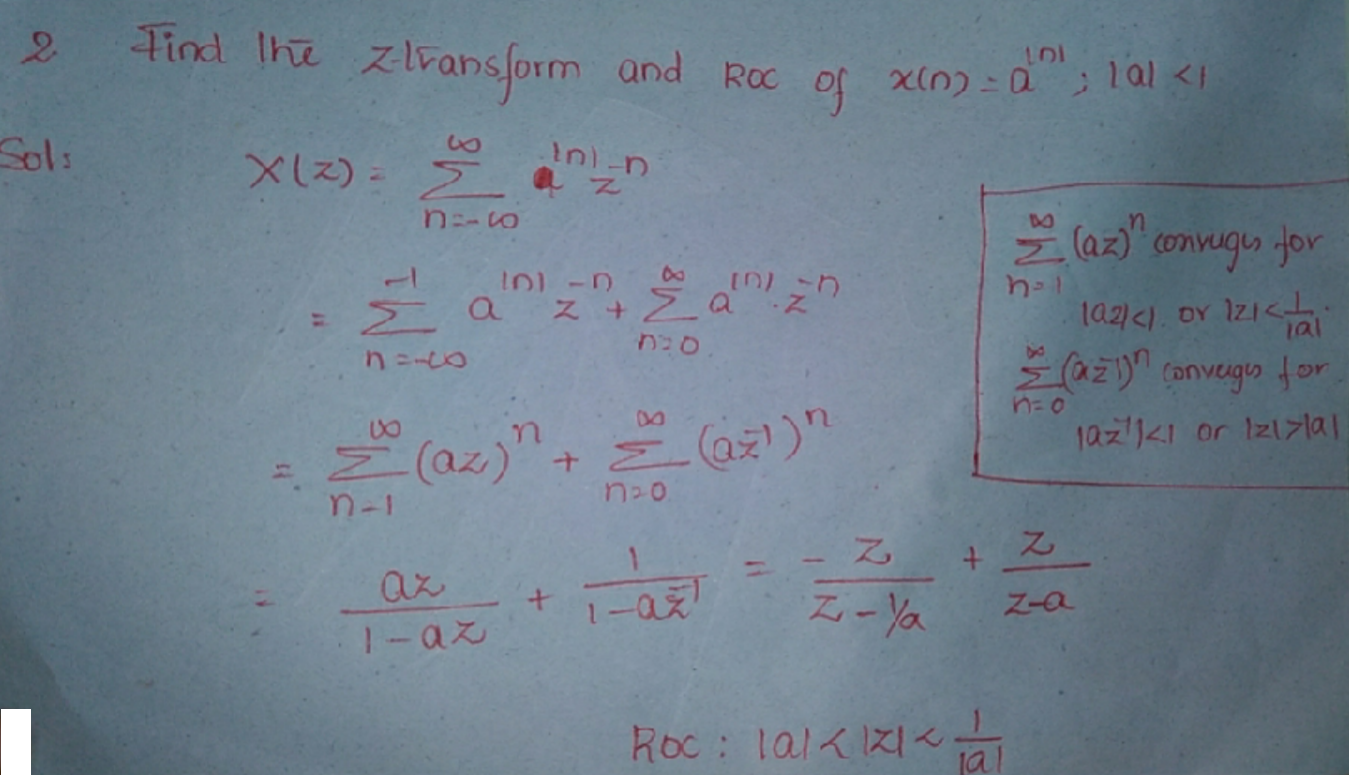 2 Find the z-transform and ROC of x(n) = a^|n| ; |a| < 1
Sol:
X(z) = ∑_{n=-∞}^{∞} a^|n| z^-n
= ∑_{n=-∞}^{-1} a^|n| z^-n + ∑_{n=0}^{∞} a^|n| . z^-n
= ∑_{n-1}^{∞} (az)^n + ∑_{n=0}^{∞} (az^-1)^n
= az/(1-az) + 1/(1-az^-1) = -z/(z-1/a) + z/(z-a)
ROC : |a| < |z| < 1/|a|
∑_{n=1}^{∞} (az)^n converges for
|az|<1. or |z| < 1/|a|.
∑_{n=0}^{∞} (az^-1)^n converges for
|az^-1|<1 or |z|>|a|